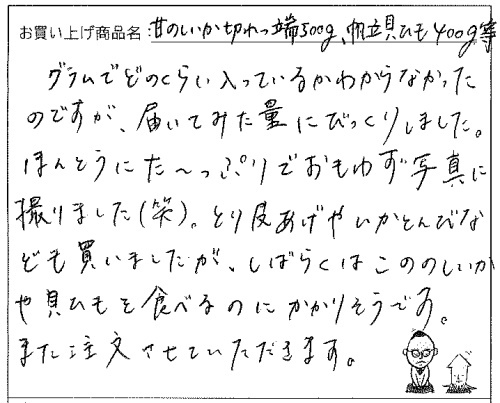 お買い上げ商品名:甘のしいか切れっ端500g、帆立貝ひも400g等
グラムでどのくらい入っているかわからなかった
のですが、届いてみた量にびっくりしました。
ほんとうにた〜っぷりでおもわず写真に
撮りました(笑)。とり皮あげやいかとんびな
ども買いましたが、しばらくはこののしいか
や貝ひもを食べるのにかかりそうです。
また注文させていただきます。